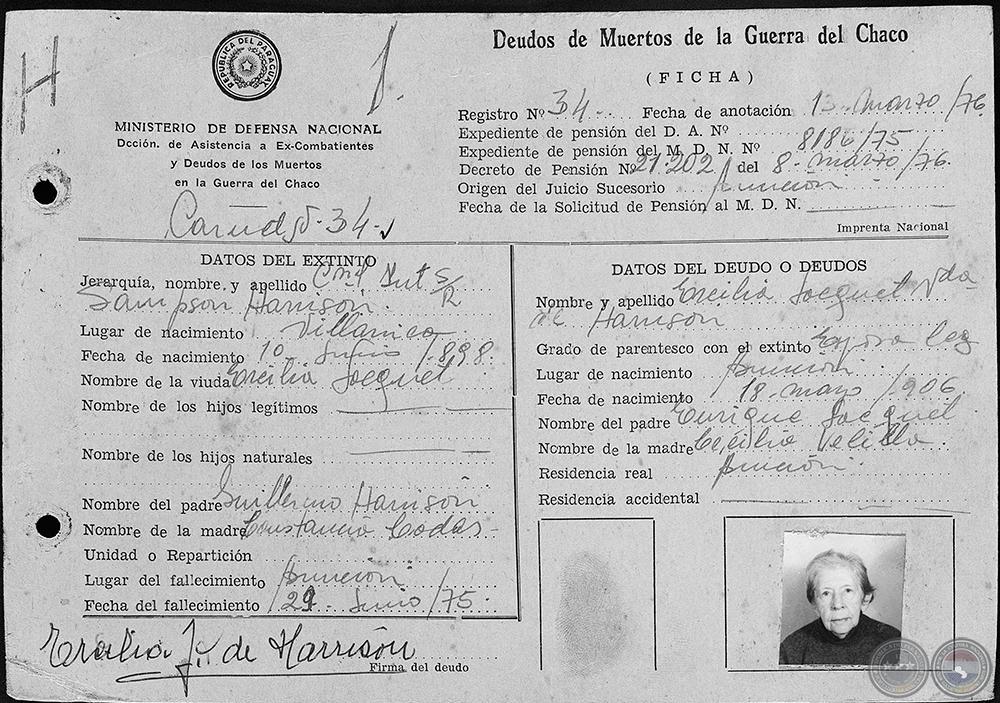 H
REPUBLICA DEL PARAGUAY
MINISTERIO DE DEFENSA NACIONAL
Dcción. de Asistencia a Ex-Combatientes
y Deudos de los Muertos
en la Guerra del Chaco
34
Deudos de Muertos de la Guerra del Chaco
(FICHA)
Registro Nº 34 Fecha de anotación 13 marzo/76
Expediente de pensión del D. A. Nº
Expediente de pensión del M. D. N. Nº 8186/75
Decreto de Pensión Nº 21.202 del 8 marzo/76
Origen del Juicio Sucesorio Asunción
Fecha de la Solicitud de Pensión al M. D. N.
Imprenta Nacional
DATOS DEL EXTINTO
Jerarquía, nombre, y apellido Cnel Int S/R
Sampson Harrison
Lugar de nacimiento Villarrica
Fecha de nacimiento 10 Junio/898
Nombre de la viuda Ercilia Jacquet
Nombre de los hijos legítimos
Nombre de los hijos naturales
Nombre del padre Guillermo Harrison
Nombre de la madre Constancia Codas
Unidad o Repartición
Lugar del fallecimiento Asunción
Fecha del fallecimiento 29 Junio/75
DATOS DEL DEUDO O DEUDOS
Nombre y apellido Ercilia Jacquet Vda
de Harrison
Grado de parentesco con el extinto Esposa leg
Lugar de nacimiento Asunción
Fecha de nacimiento 18 mayo/906
Nombre del padre Enrique Jacquet
Nombre de la madre Cecilia Velilla
Residencia real Asunción
Residencia accidental
Ercilia J. de Harrison
Firma del deudo